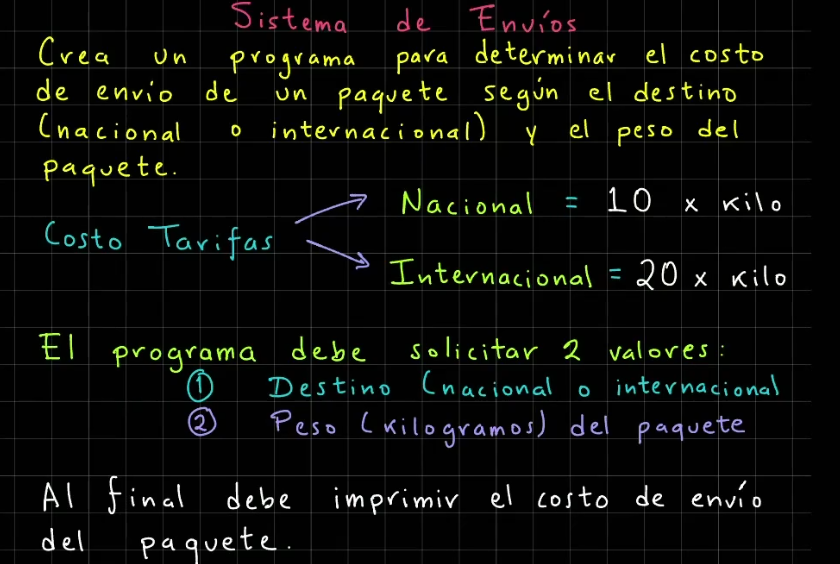 Sistema de Envíos
Crea un programa para determinar el costo
de envío de un paquete según el destino
(nacional o internacional) y el peso del
paquete.
Nacional = 10 x kilo
Costo Tarifas
Internacional = 20 x kilo
El programa debe solicitar 2 valores:
① Destino (nacional o internacional
② Peso (kilogramos) del paquete
Al final debe imprimir el costo de envío
del paquete.